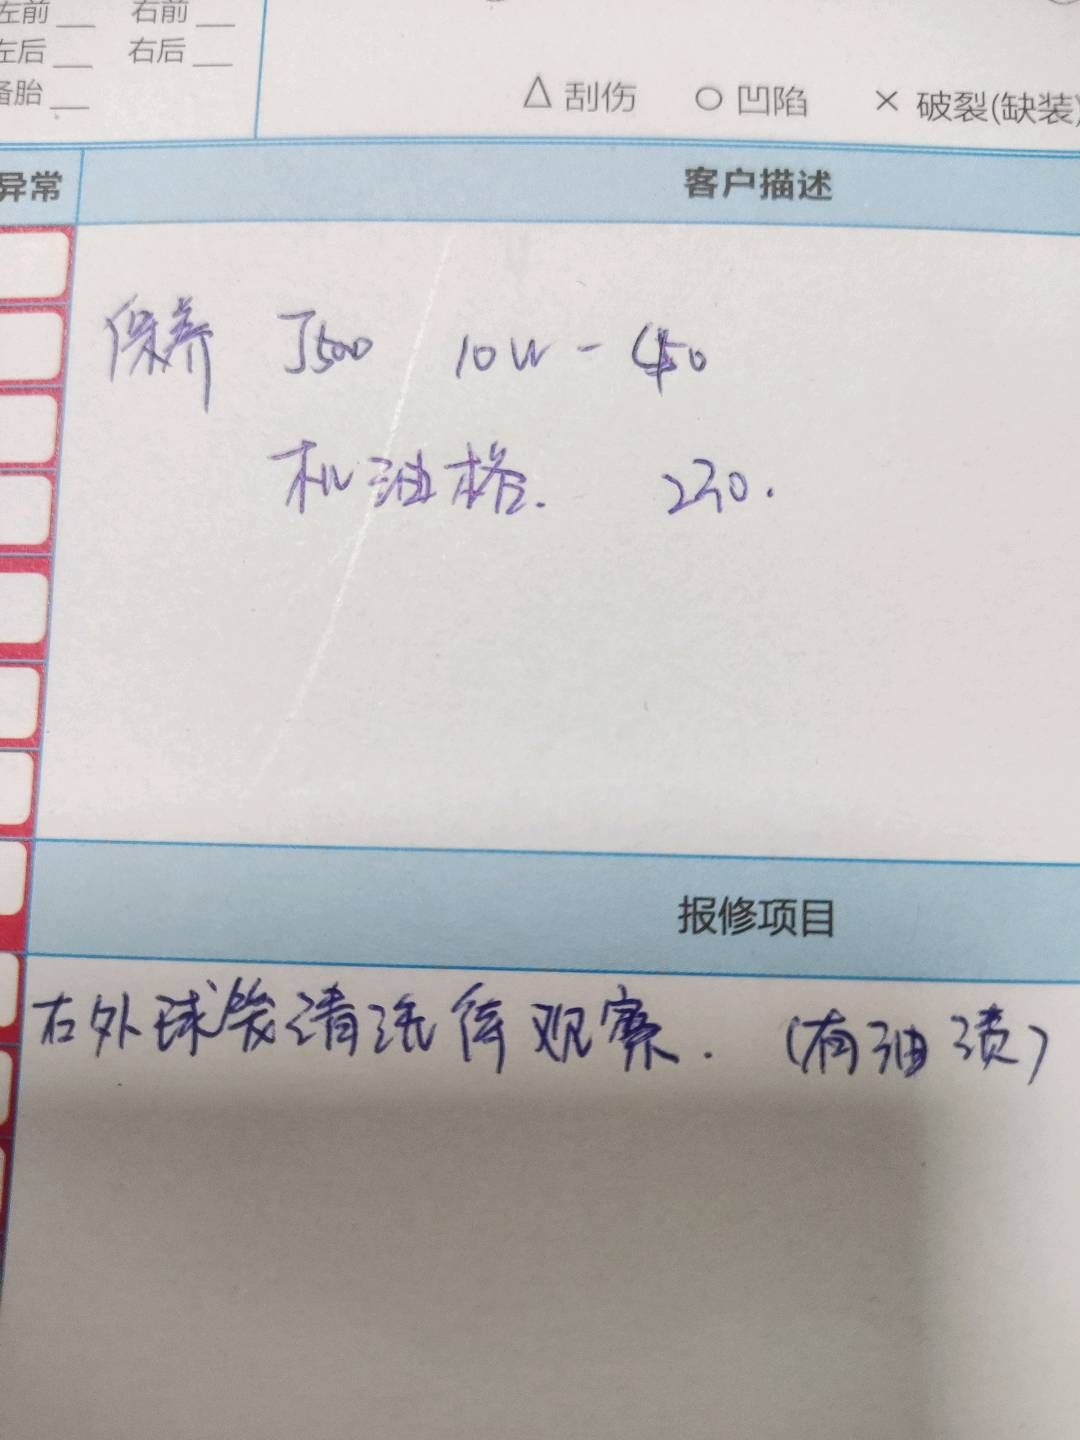 左前__ 右前__
左后__ 右后__
备胎__
△ 刮伤 ○ 凹陷 × 破裂(缺装)
异常 客户描述
保养 J500 10W-40
机油格. 230.
报修项目
右外球笼清洗待观察. (有油渍)